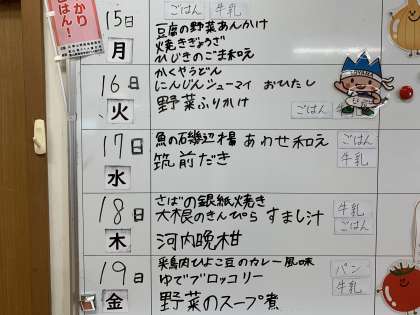 ごはん 牛乳
15日 豆腐の野菜あんかけ
月 焼きぎょうざ
ひじきのごま和え
16日 かくやうどん
にんじんシューマイ おひたし
火 野菜ふりかけ ごはん
17日 魚の石磯辺揚 あわせ和え ごはん
水 筑前だき 牛乳
18日 さばの銀紙焼き 牛乳
大根のきんぴら すまし汁 ごはん
木 河内晩柑
19日 鶏肉ひよこ豆のカレー風味 パン
ゆでブロッコリー 牛乳
金 野菜のスープ煮